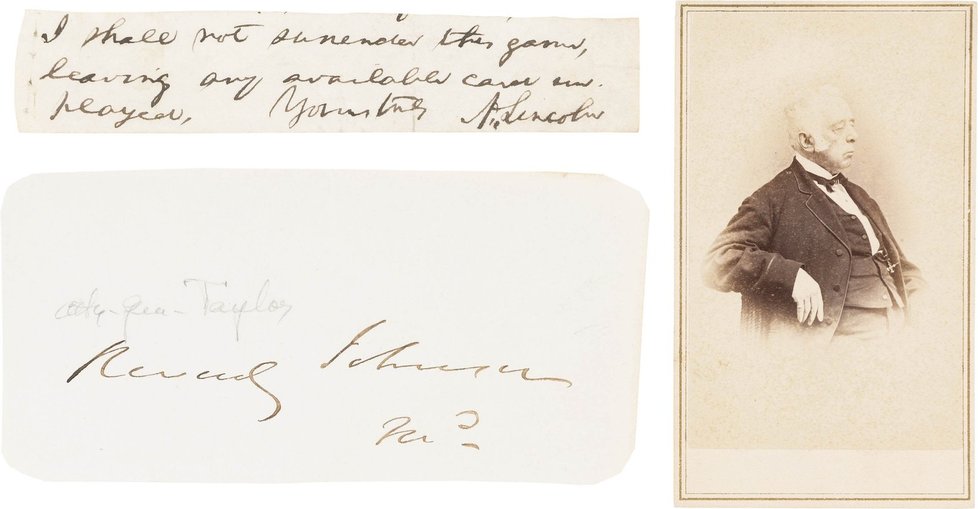 I shall not surrender this game,
leaving any available card un-
played, Yours truly A. Lincoln
atty-gen- Taylor
Reverdy Johnson
Md